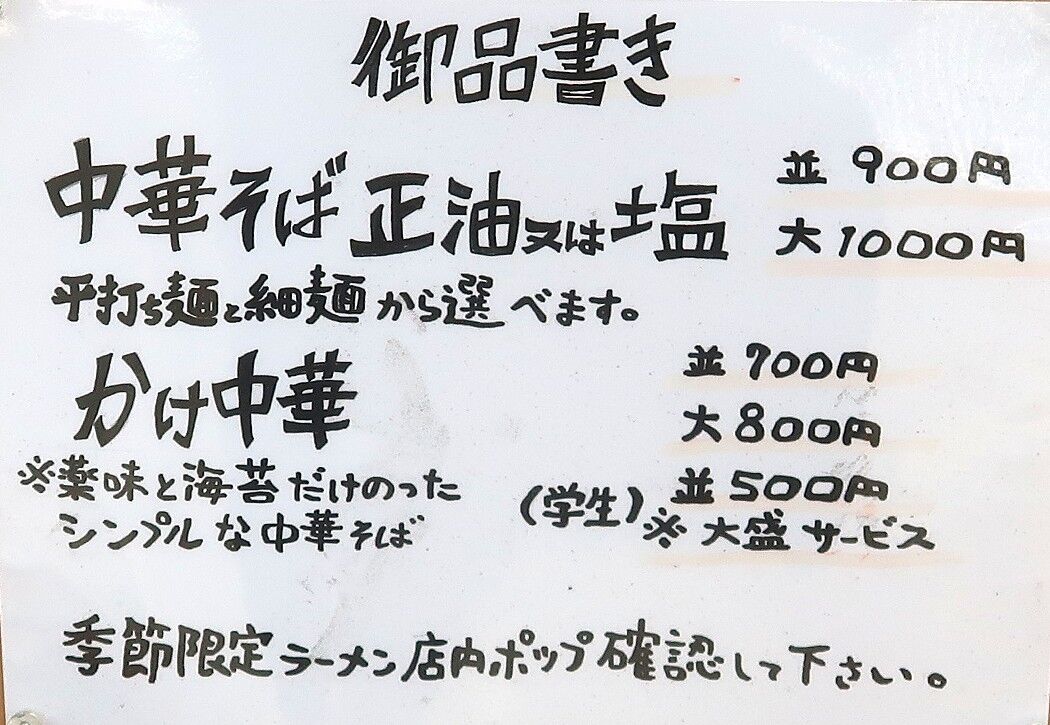 御品書き
中華そば 正油又は塩 並 900円
大 1000円
平打ち麺と細麺から選べます。
かけ中華 並 700円
大 800円
※薬味と海苔だけのった
シンプルな中華そば
(学生) 並 500円
※大盛サービス
季節限定ラーメン店内ポップ確認して下さい。